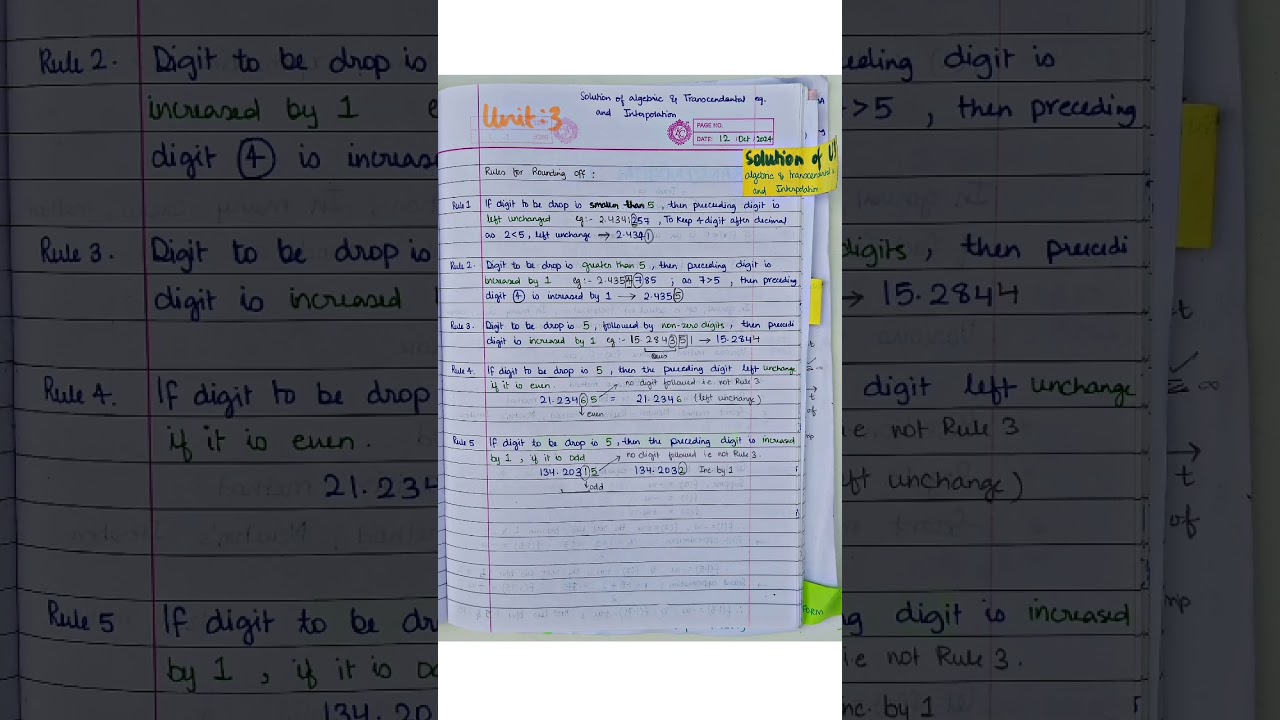 Solution of algebric & Transcendental eq.
and Interpolation
Unit:3
PAGE NO.
DATE: 12 Oct 2024
Solution of
algebric & transcendental
and Interpolation
Rules for Rounding off :
Rule 1 If digit to be drop is smaller than 5, then preceeding digit is
left unchanged eg:- 2.4341257, To keep 4 digit after decimal
as 2<5, left unchange → 2.4341
Rule 2. Digit to be drop is greater than 5, then preceding digit is
increased by 1 eg:- 2.4354785, as 7>5, then preceding
digit 4 is increased by 1 → 2.4355
Rule 3. Digit to be drop is 5, followed by non-zero digits, then preceedi
digit is increased by 1 eg:- 15.284351 → 15.2844
Rule 4. If digit to be drop is 5, then the preceding digit left unchange
if it is even. no digit followed i.e not Rule 3
21.23465 = 21.2346 (left unchange)
even
Rule 5 If digit to be drop is 5, then the preceding digit is increased
by 1, if it is odd no digit followed i.e not Rule 3.
134.20315 134.2032 Inc. by 1
odd
FORM
Rule 2. Digit to be drop is
increased by 1
digit 4 is increas
Rule 3. Digit to be drop is
digit is increased
Rule 4. If digit to be drop
if it is even.
21.234
Rule 5 If digit to be dr
by 1, if it is od
134.20
eeding digit is
>5, then preceding
digits, then preceedi
→ 15.2844
digit left unchange
i.e not Rule 3
ft unchange)
g digit is increased
i.e not Rule 3.
Inc. by 1